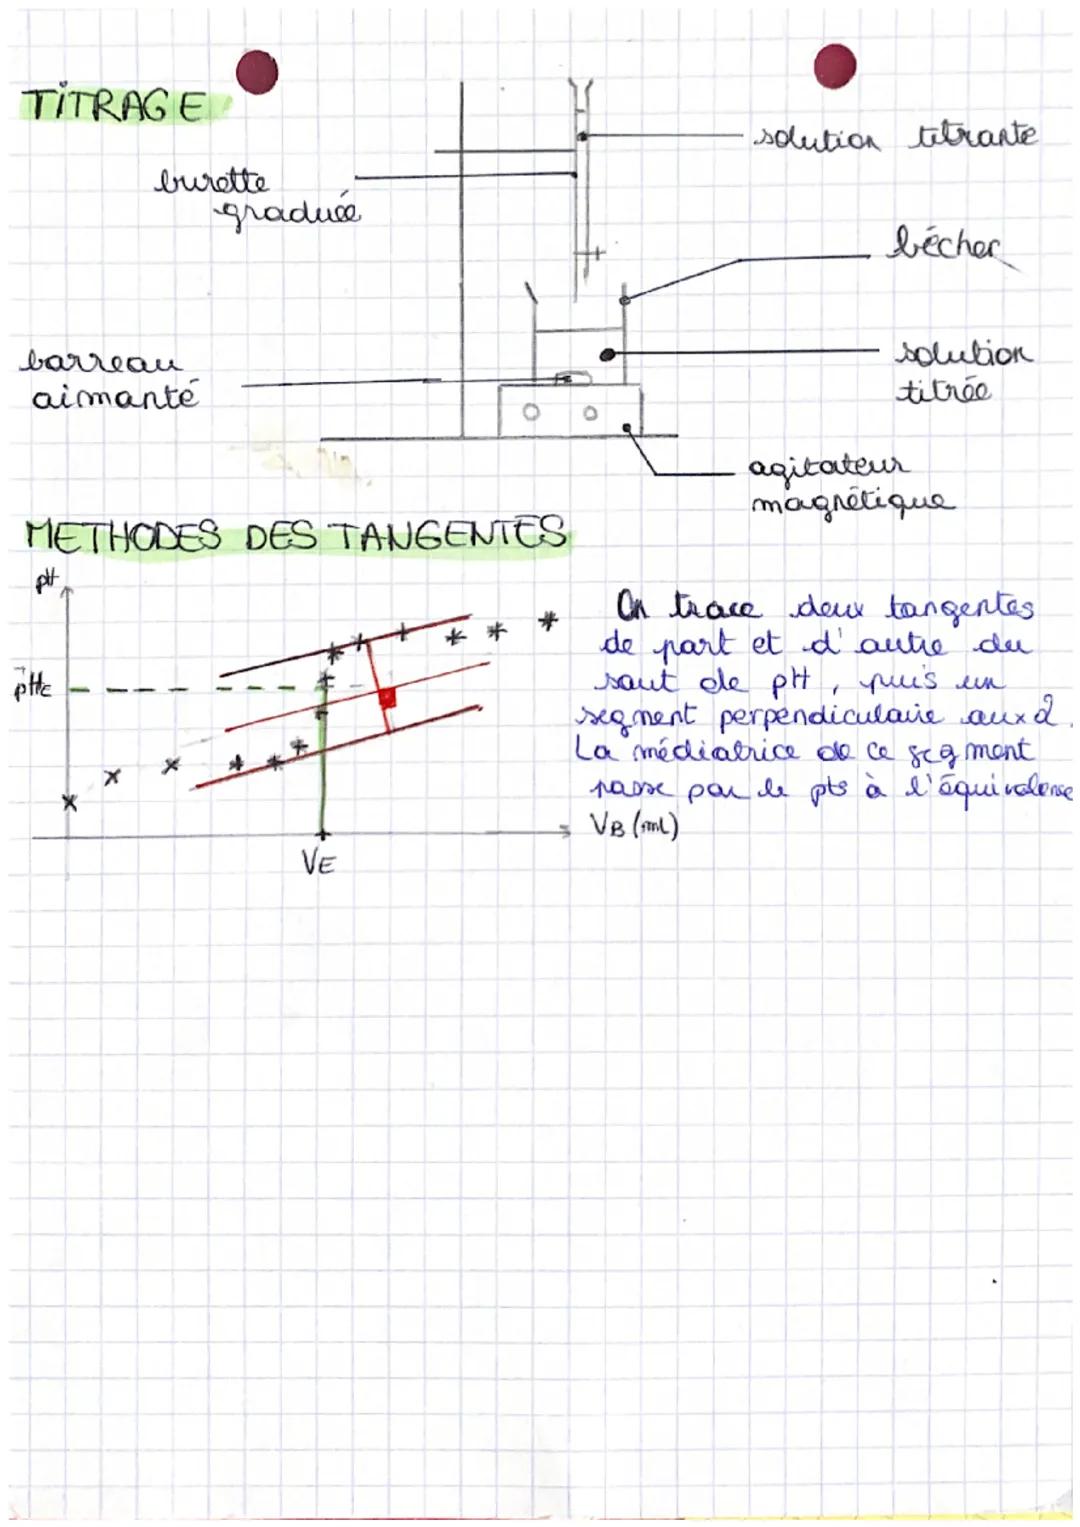 TITRAGE
solution titrante
burette
graduée
bécher
barreau
aimanté
solution
titrée
agitateur
magnétique
METHODES DES TANGENTES
pH
On trace deux tangentes
de part et d'autre du
saut de pH, puis un
pHE
segment perpendiculaire aux 2.
La médiatrice de ce segment
passe par le pts à l'équivalence
VB (mL)
VE